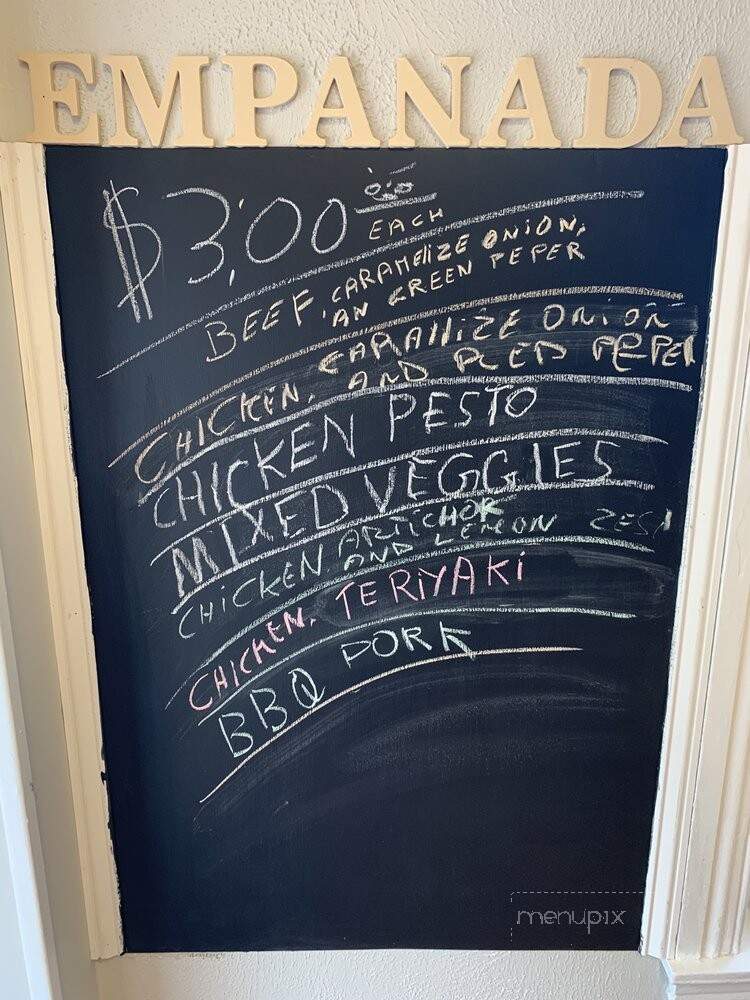 EMPANADA
$3.00 EACH
BEEF, CARAMELIZE ONION,
AN GREEN PEPER
CHICKEN, CARAMLIZE ONION
AND RED PEPER
CHICKEN PESTO
MIXED VEGGIES
CHICKEN ARTICHOK
AND LEMON ZEST
CHICKEN. TERIYAKI
BBQ PORK
menupix